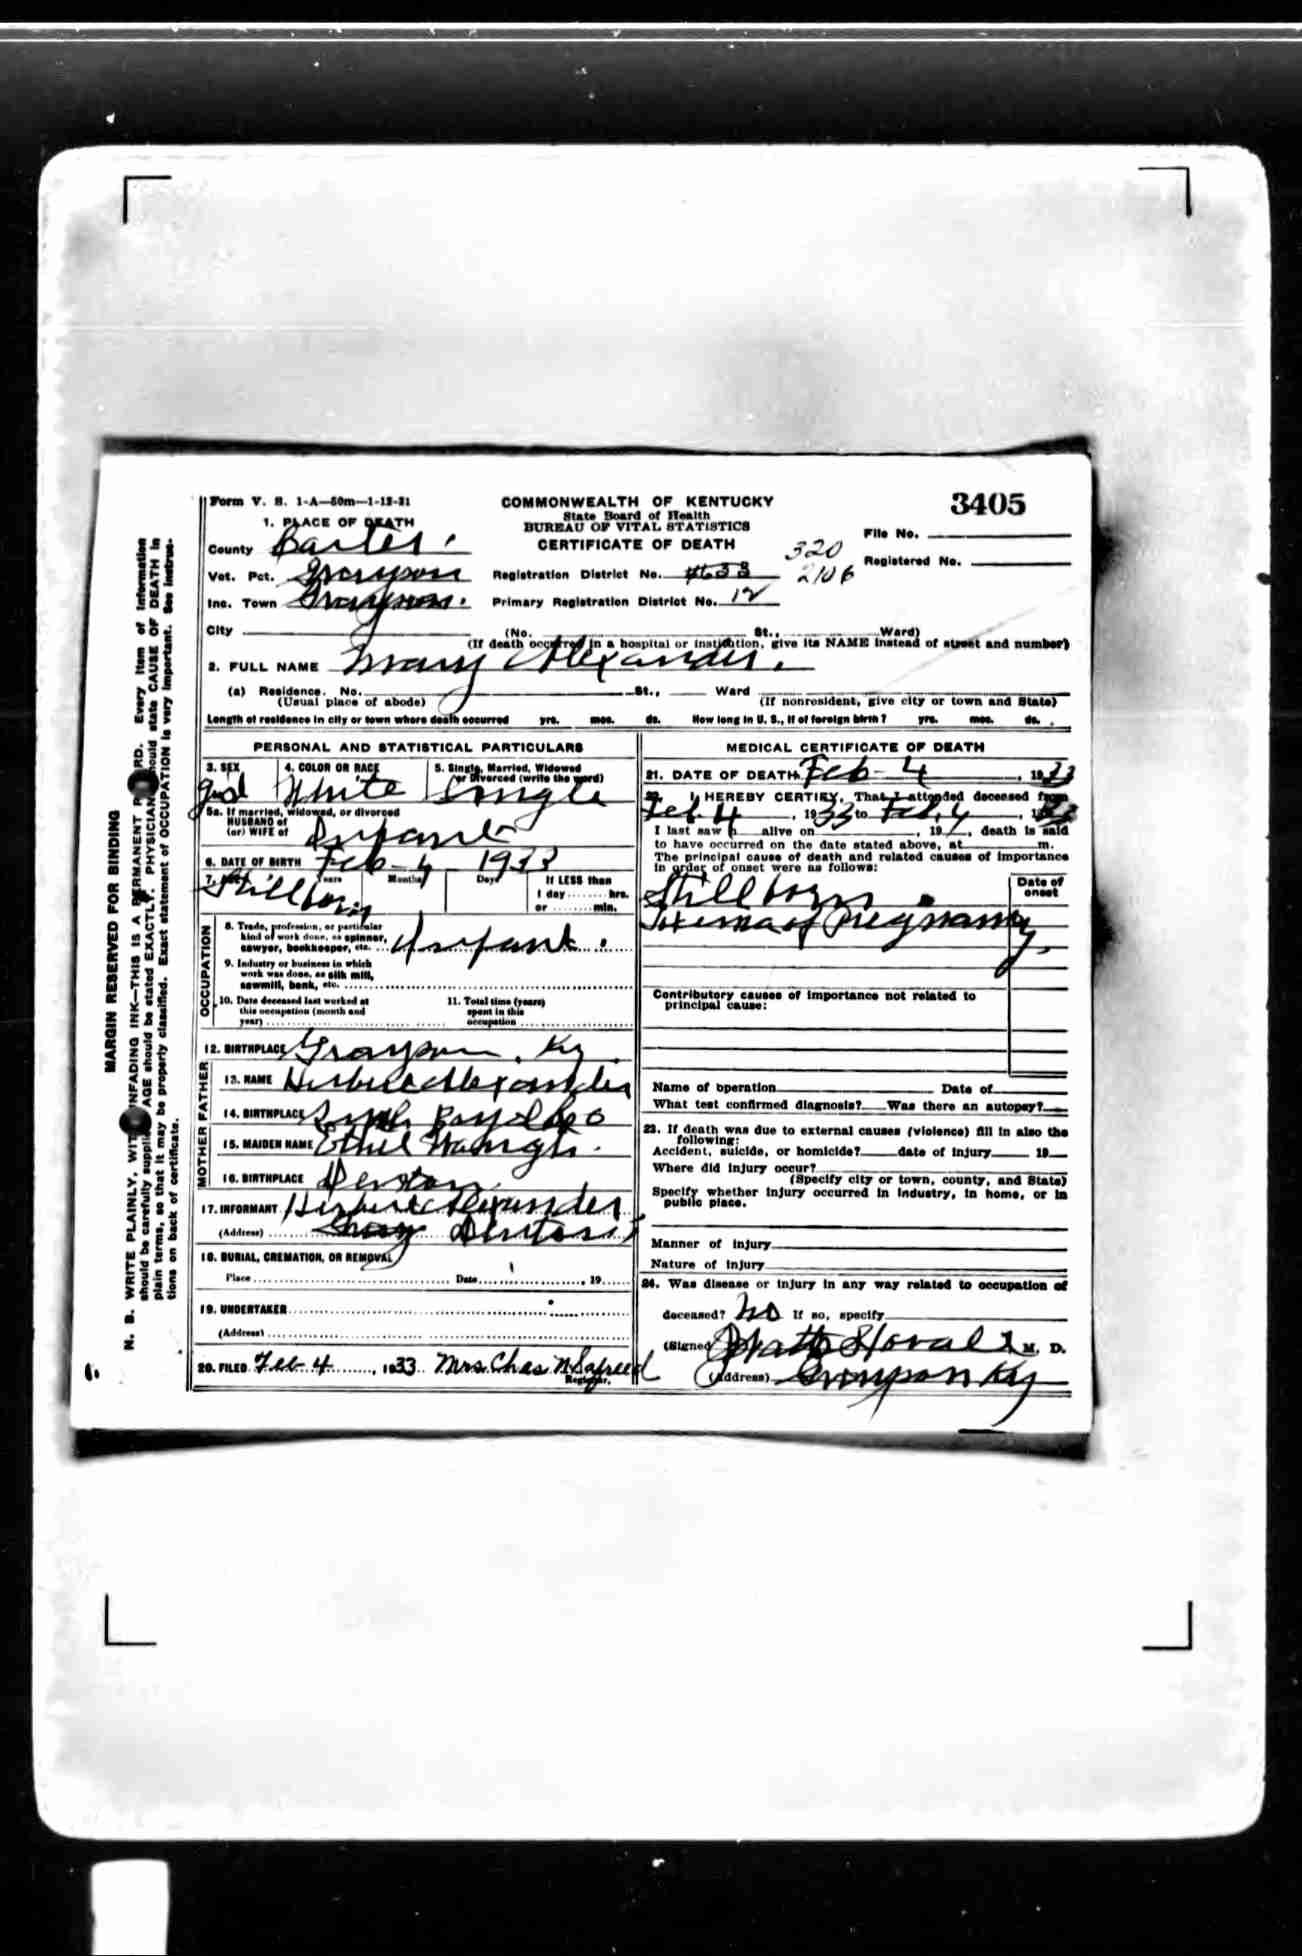 Form V. S. 1-A—50m—1-12-31
COMMONWEALTH OF KENTUCKY
State Board of Health
BUREAU OF VITAL STATISTICS
CERTIFICATE OF DEATH
3405
File No.
Registered No.
320
2106
1. PLACE OF DEATH
County Carter
Vot. Pct. Grayson Registration District No.
Inc. Town Grayson. Primary Registration District No. 12
City (No. St., Ward)
(If death occurred in a hospital or institution, give its NAME instead of street and number)
2. FULL NAME Mary Alexander.
(a) Residence. No. St., Ward
(Usual place of abode) (If nonresident, give city or town and State)
Length of residence in city or town where death occurred yrs. mos. ds. How long in U. S., if of foreign birth? yrs. mos. ds.
PERSONAL AND STATISTICAL PARTICULARS
3. SEX 4. COLOR OR RACE 5. Single, Married, Widowed
or Divorced (write the word)
White Single
5a. If married, widowed, or divorced
HUSBAND of
(or) WIFE of Infant
6. DATE OF BIRTH Feb-4 1933
7. AGE Years Months Days If LESS than
1 day hrs.
or min.
Stillborn
OCCUPATION
8. Trade, profession, or particular
kind of work done, as spinner,
sawyer, bookkeeper, etc. Infant.
9. Industry or business in which
work was done, as silk mill,
sawmill, bank, etc.
10. Date deceased last worked at
this occupation (month and
year)
11. Total time (years)
spent in this
occupation
12. BIRTHPLACE Grayson, Ky.
FATHER
13. NAME Hirbert Alexander
14. BIRTHPLACE
MOTHER
15. MAIDEN NAME Ethel
16. BIRTHPLACE Denton
17. INFORMANT Hirbert Alexander
(Address) Denton
18. BURIAL, CREMATION, OR REMOVAL
Place Date , 19
19. UNDERTAKER
(Address)
20. FILED Feb 4, 1933 Mrs. Chas N Safreed
Registrar.
MEDICAL CERTIFICATE OF DEATH
21. DATE OF DEATH Feb-4, 1933
22. I HEREBY CERTIFY, That I attended deceased from
Feb. 4, 1933 to Feb. 4, 1933
I last saw h alive on , 19 , death is said
to have occurred on the date stated above, at m.
The principal cause of death and related causes of importance
in order of onset were as follows:
Date of
onset
Stillborn
Toxemia of Pregnancy
Contributory causes of importance not related to
principal cause:
Name of operation Date of
What test confirmed diagnosis? Was there an autopsy?
23. If death was due to external causes (violence) fill in also the
following:
Accident, suicide, or homicide? date of injury 19
Where did injury occur?
(Specify city or town, county, and State)
Specify whether injury occurred in industry, in home, or in
public place.
Manner of injury
Nature of injury
24. Was disease or injury in any way related to occupation of
deceased? No If so, specify
(Signed) M. D.
(Address) Grayson Ky
MARGIN RESERVED FOR BINDING
N. B. WRITE PLAINLY, WITH UNFADING INK—THIS IS A PERMANENT RECORD. Every item of information
should be carefully supplied. AGE should be stated EXACTLY. PHYSICIANS should state CAUSE OF DEATH in
plain terms, so that it may be properly classified. Exact statement of OCCUPATION is very important. See instruc-
tions on back of certificate.